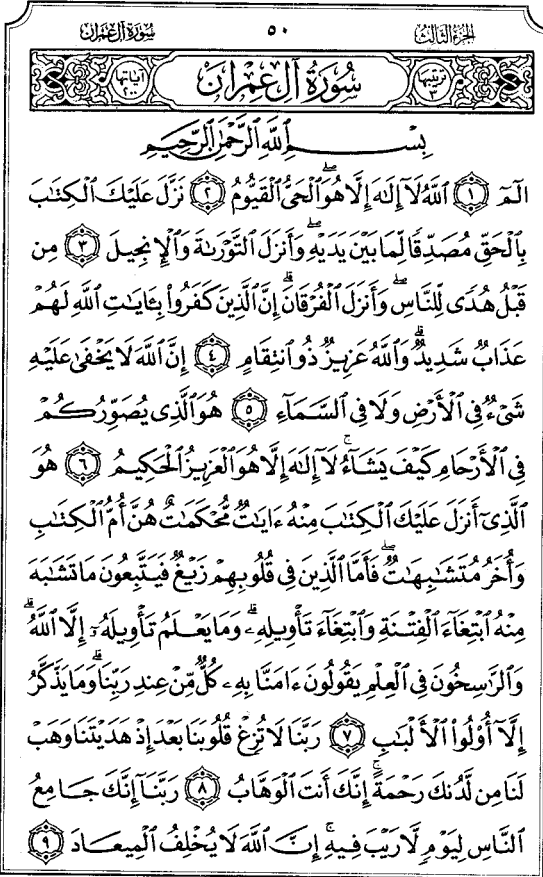 سورة آل عمران ٥٠ الجزء الثالث
ترتيبها ٣ سُورَةُ آلِ عِمْرَان آياتها ٢٠٠
بِسْمِ اللَّهِ الرَّحْمَٰنِ الرَّحِيمِ
الٓمٓ ١ اللَّهُ لَآ إِلَٰهَ إِلَّا هُوَ الْحَيُّ الْقَيُّومُ ٢ نَزَّلَ عَلَيْكَ الْكِتَٰبَ
بِالْحَقِّ مُصَدِّقًا لِّمَا بَيْنَ يَدَيْهِ وَأَنزَلَ التَّوْرَىٰةَ وَالْإِنجِيلَ ٣ مِن
قَبْلُ هُدًى لِّلنَّاسِ وَأَنزَلَ الْفُرْقَانَ إِنَّ الَّذِينَ كَفَرُوا۟ بِـَٔايَٰتِ اللَّهِ لَهُمْ
عَذَابٌ شَدِيدٌ وَاللَّهُ عَزِيزٌ ذُو انتِقَامٍ ٤ إِنَّ اللَّهَ لَا يَخْفَىٰ عَلَيْهِ
شَىْءٌ فِى الْأَرْضِ وَلَا فِى السَّمَآءِ ٥ هُوَ الَّذِى يُصَوِّرُكُمْ
فِى الْأَرْحَامِ كَيْفَ يَشَآءُ لَآ إِلَٰهَ إِلَّا هُوَ الْعَزِيزُ الْحَكِيمُ ٦ هُوَ
الَّذِىٓ أَنزَلَ عَلَيْكَ الْكِتَٰبَ مِنْهُ ءَايَٰتٌ مُّحْكَمَٰتٌ هُنَّ أُمُّ الْكِتَٰبِ
وَأُخَرُ مُتَشَٰبِهَٰتٌ فَأَمَّا الَّذِينَ فِى قُلُوبِهِمْ زَيْغٌ فَيَتَّبِعُونَ مَا تَشَٰبَهَ
مِنْهُ ابْتِغَآءَ الْفِتْنَةِ وَابْتِغَآءَ تَأْوِيلِهِۦ وَمَا يَعْلَمُ تَأْوِيلَهُۥٓ إِلَّا اللَّهُ
وَالرَّٰسِخُونَ فِى الْعِلْمِ يَقُولُونَ ءَامَنَّا بِهِۦ كُلٌّ مِّنْ عِندِ رَبِّنَا وَمَا يَذَّكَّرُ
إِلَّآ أُو۟لُوا۟ الْأَلْبَٰبِ ٧ رَبَّنَا لَا تُزِغْ قُلُوبَنَا بَعْدَ إِذْ هَدَيْتَنَا وَهَبْ
لَنَا مِن لَّدُنكَ رَحْمَةً إِنَّكَ أَنتَ الْوَهَّابُ ٨ رَبَّنَآ إِنَّكَ جَامِعُ
النَّاسِ لِيَوْمٍ لَّا رَيْبَ فِيهِ إِنَّ اللَّهَ لَا يُخْلِفُ الْمِيعَادَ ٩